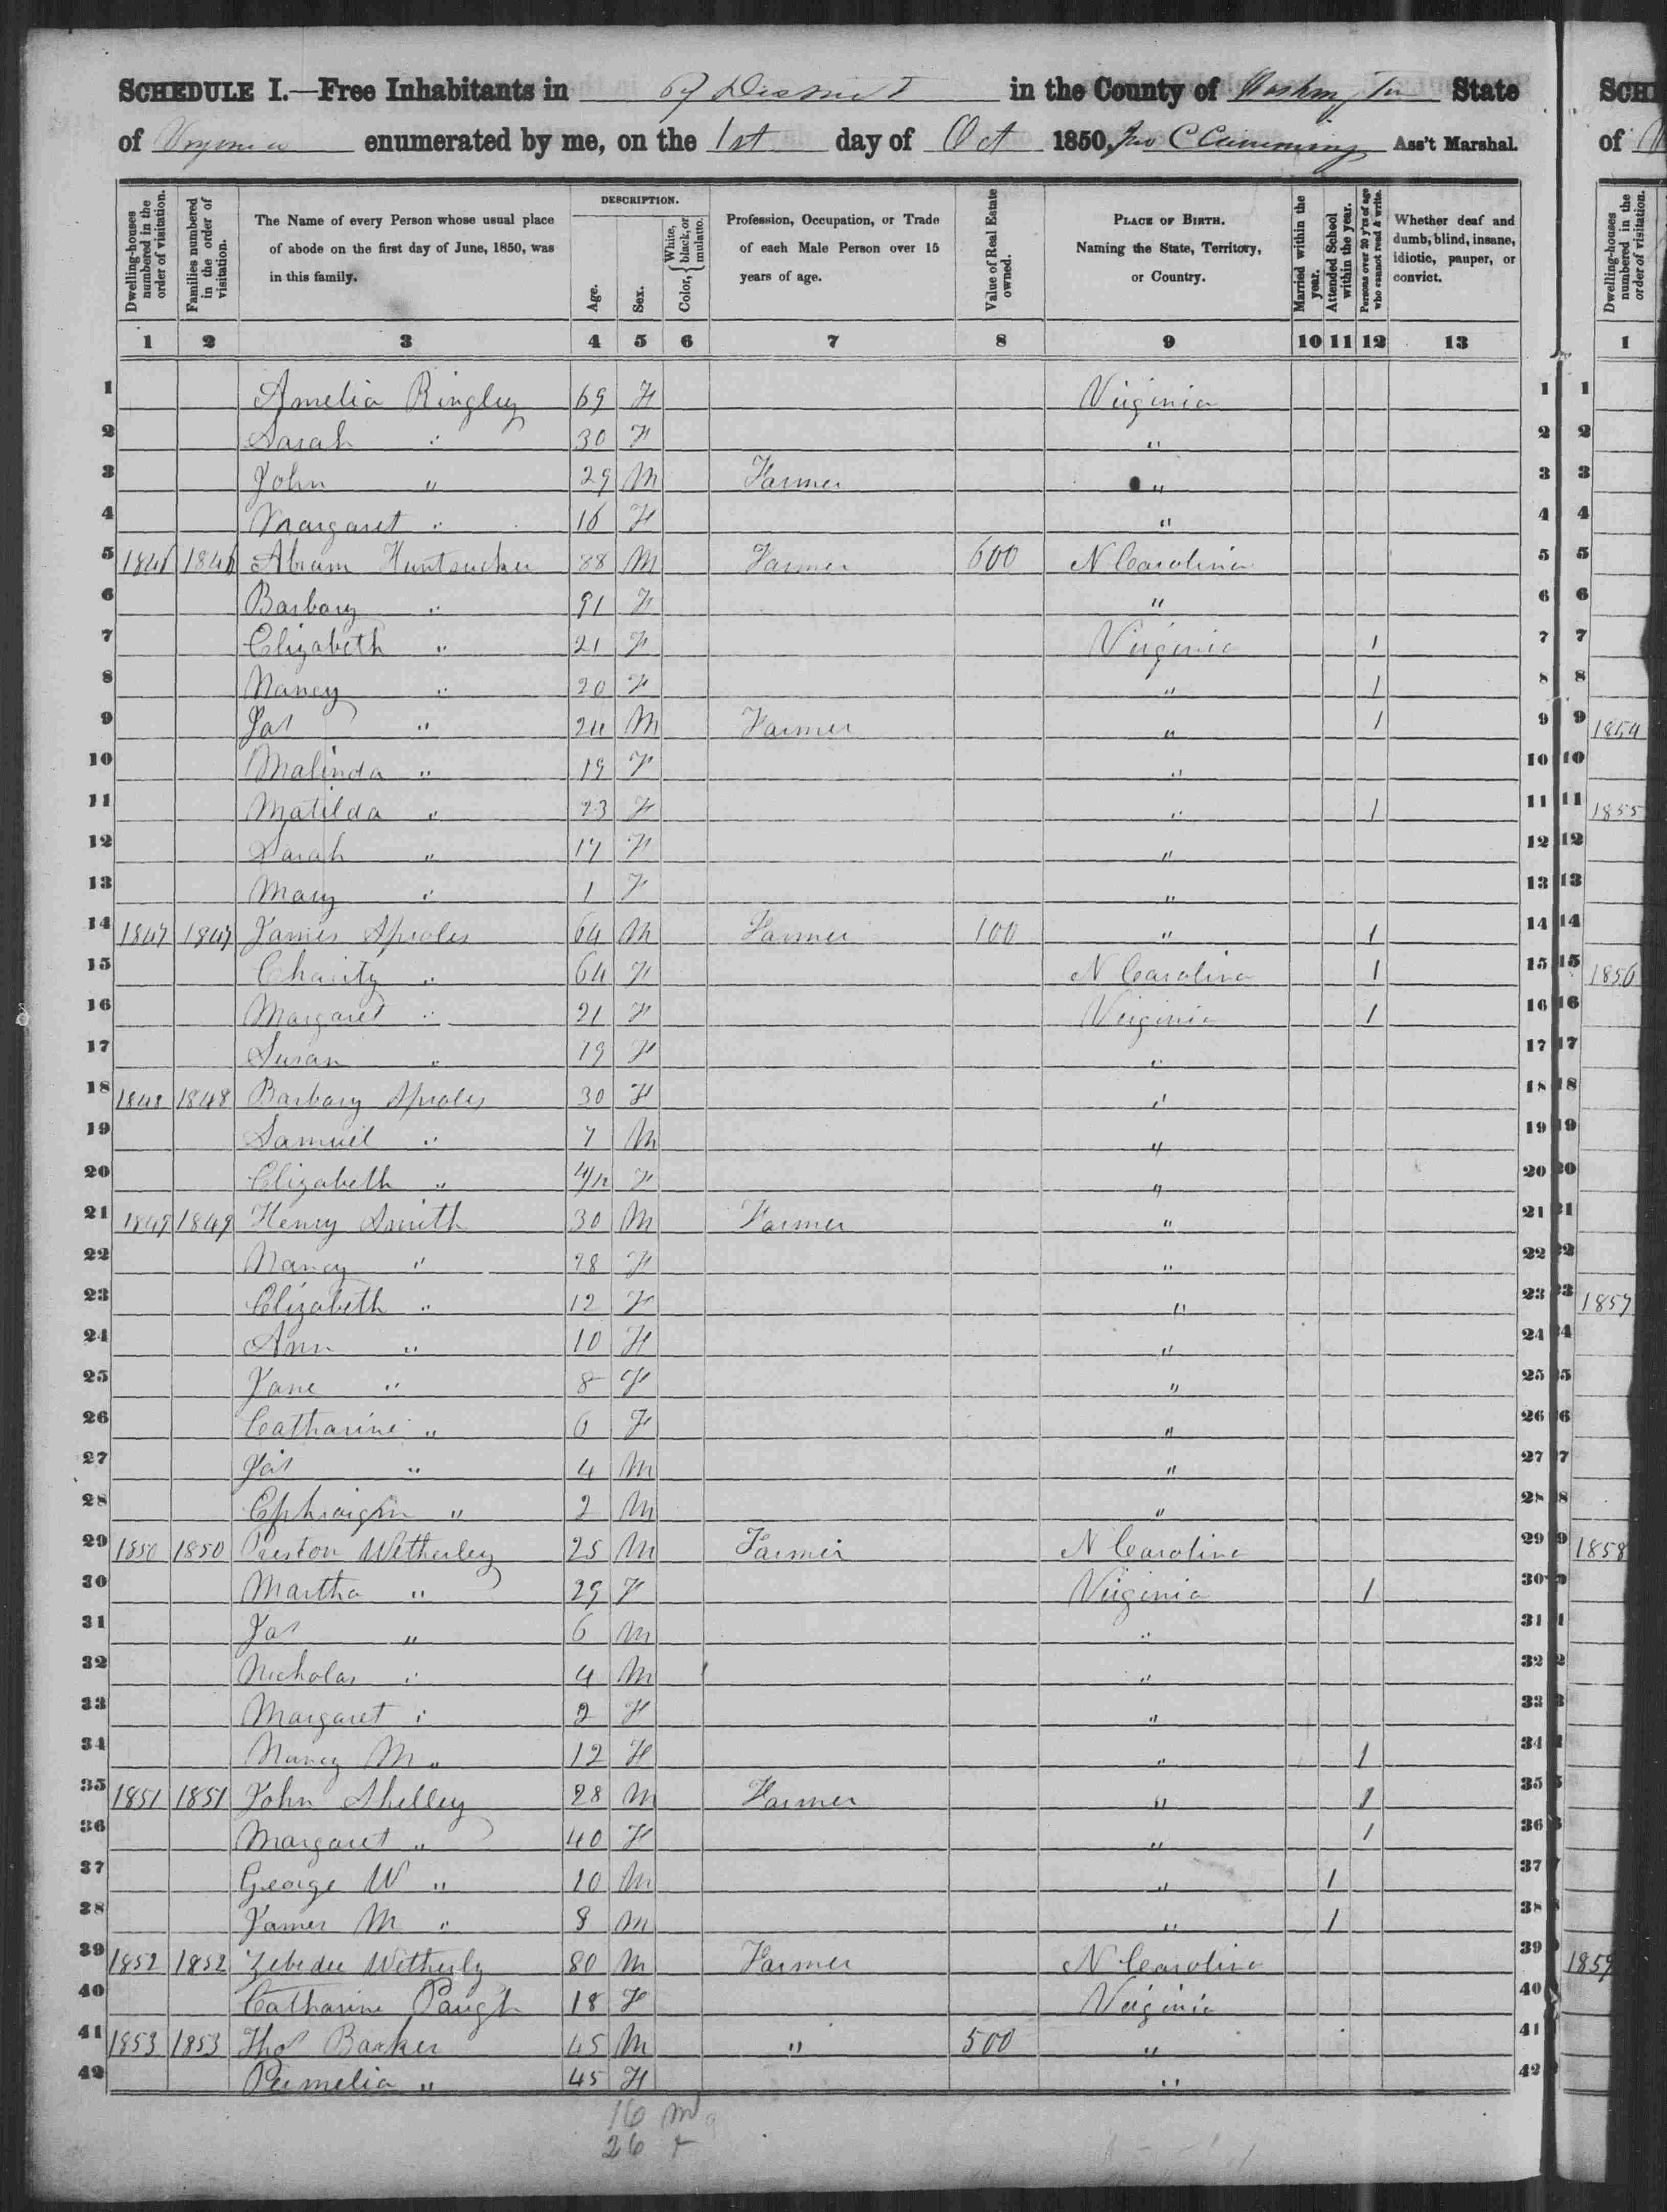 SCHEDULE I.—Free Inhabitants in 67 District in the County of Washington State
of Virginia enumerated by me, on the 1st day of Oct 1850, Jno C Cumming Ass't Marshal.
Dwelling-houses numbered in the order of visitation.
Families numbered in the order of visitation.
The Name of every Person whose usual place of abode on the first day of June, 1850, was in this family.
DESCRIPTION.
Age.
Sex.
Color, { White, black, or mulatto.
Profession, Occupation, or Trade of each Male Person over 15 years of age.
Value of Real Estate owned.
PLACE OF BIRTH. Naming the State, Territory, or Country.
Married within the year.
Attended School within the year.
Persons over 20 y'rs of age who cannot read & write.
Whether deaf and dumb, blind, insane, idiotic, pauper, or convict.
1 2 3 4 5 6 7 8 9 10 11 12 13
1 Amelia Ringley 69 F Virginia 1
2 Sarah " 30 F " 2
3 John " 29 M Farmer " 3
4 Margaret " 16 F " 4
5 1846 1846 Abram Huntsucker 88 M Farmer 600 N Carolina 5
6 Barbary " 91 F " 6
7 Elizabeth " 21 F Virginia 1 7
8 Nancy " 20 F " 1 8
9 Jas " 24 M Farmer " 1 9
10 Malinda " 19 F " 10
11 Matilda " 23 F " 1 11
12 Sarah " 17 F " 12
13 Mary " 1 F " 13
14 1847 1847 James Sproles 64 M Farmer 100 " 1 14
15 Charity " 64 F N Carolina 1 15
16 Margaret " 21 F Virginia 1 16
17 Susan " 19 F " 17
18 1848 1848 Barbary Sproles 30 F " 18
19 Samuel " 7 M " 19
20 Elizabeth " 4/12 F " 20
21 1849 1849 Henry Smith 30 M Farmer " 21
22 Nancy " 28 F " 22
23 Elizabeth " 12 F " 23
24 Ann " 10 F " 24
25 Jane " 8 F " 25
26 Catharine " 6 F " 26
27 Jas " 4 M " 27
28 Ephraigm " 2 M " 28
29 1850 1850 Preston Wetherley 25 M Farmer N Carolina 29
30 Martha " 29 F Virginia 1 30
31 Jas " 6 M " 31
32 Nicholas " 4 M " 32
33 Margaret " 2 F " 33
34 Nancy M " 12 F " 1 34
35 1851 1851 John Shelley 28 M Farmer " 1 35
36 Margaret " 40 F " 1 36
37 George W " 10 M " 1 37
38 James M " 8 M " 1 38
39 1852 1852 Zebedee Wetherly 80 M Farmer N Carolina 39
40 Catharine Paugh 18 F Virginia 40
41 1853 1853 Thos Barker 45 M " 500 " 41
42 Pamelia " 45 F " 42
16 m
26 f
SCH
of
Dwelling-houses numbered in the order of visitation.
1
1
2
3
4
5
6
7
8
9 1854
10
11 1855
12
13
14
15 1856
16
17
18
19
20
21
22
23 1857
24
25
26
27
28
29 1858
1859